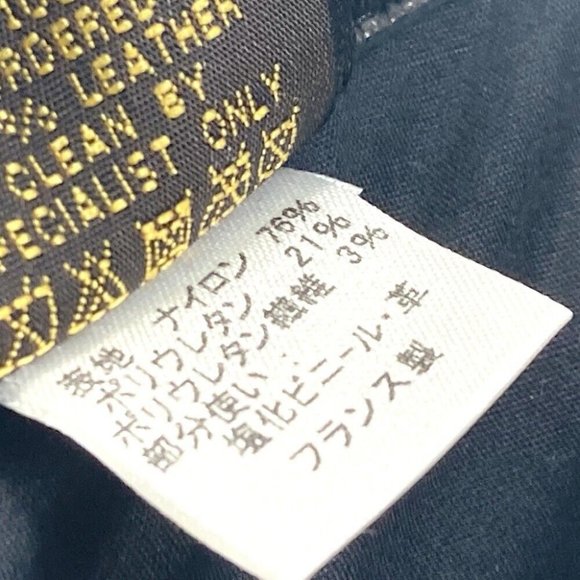 % LEATHER
CLEAN BY
SPECIALIST ONLY
表地 ナイロン 76%
ポリウレタン 21%
ポリウレタン繊維 3%
部分使い:
塩化ビニール・革
フランス製